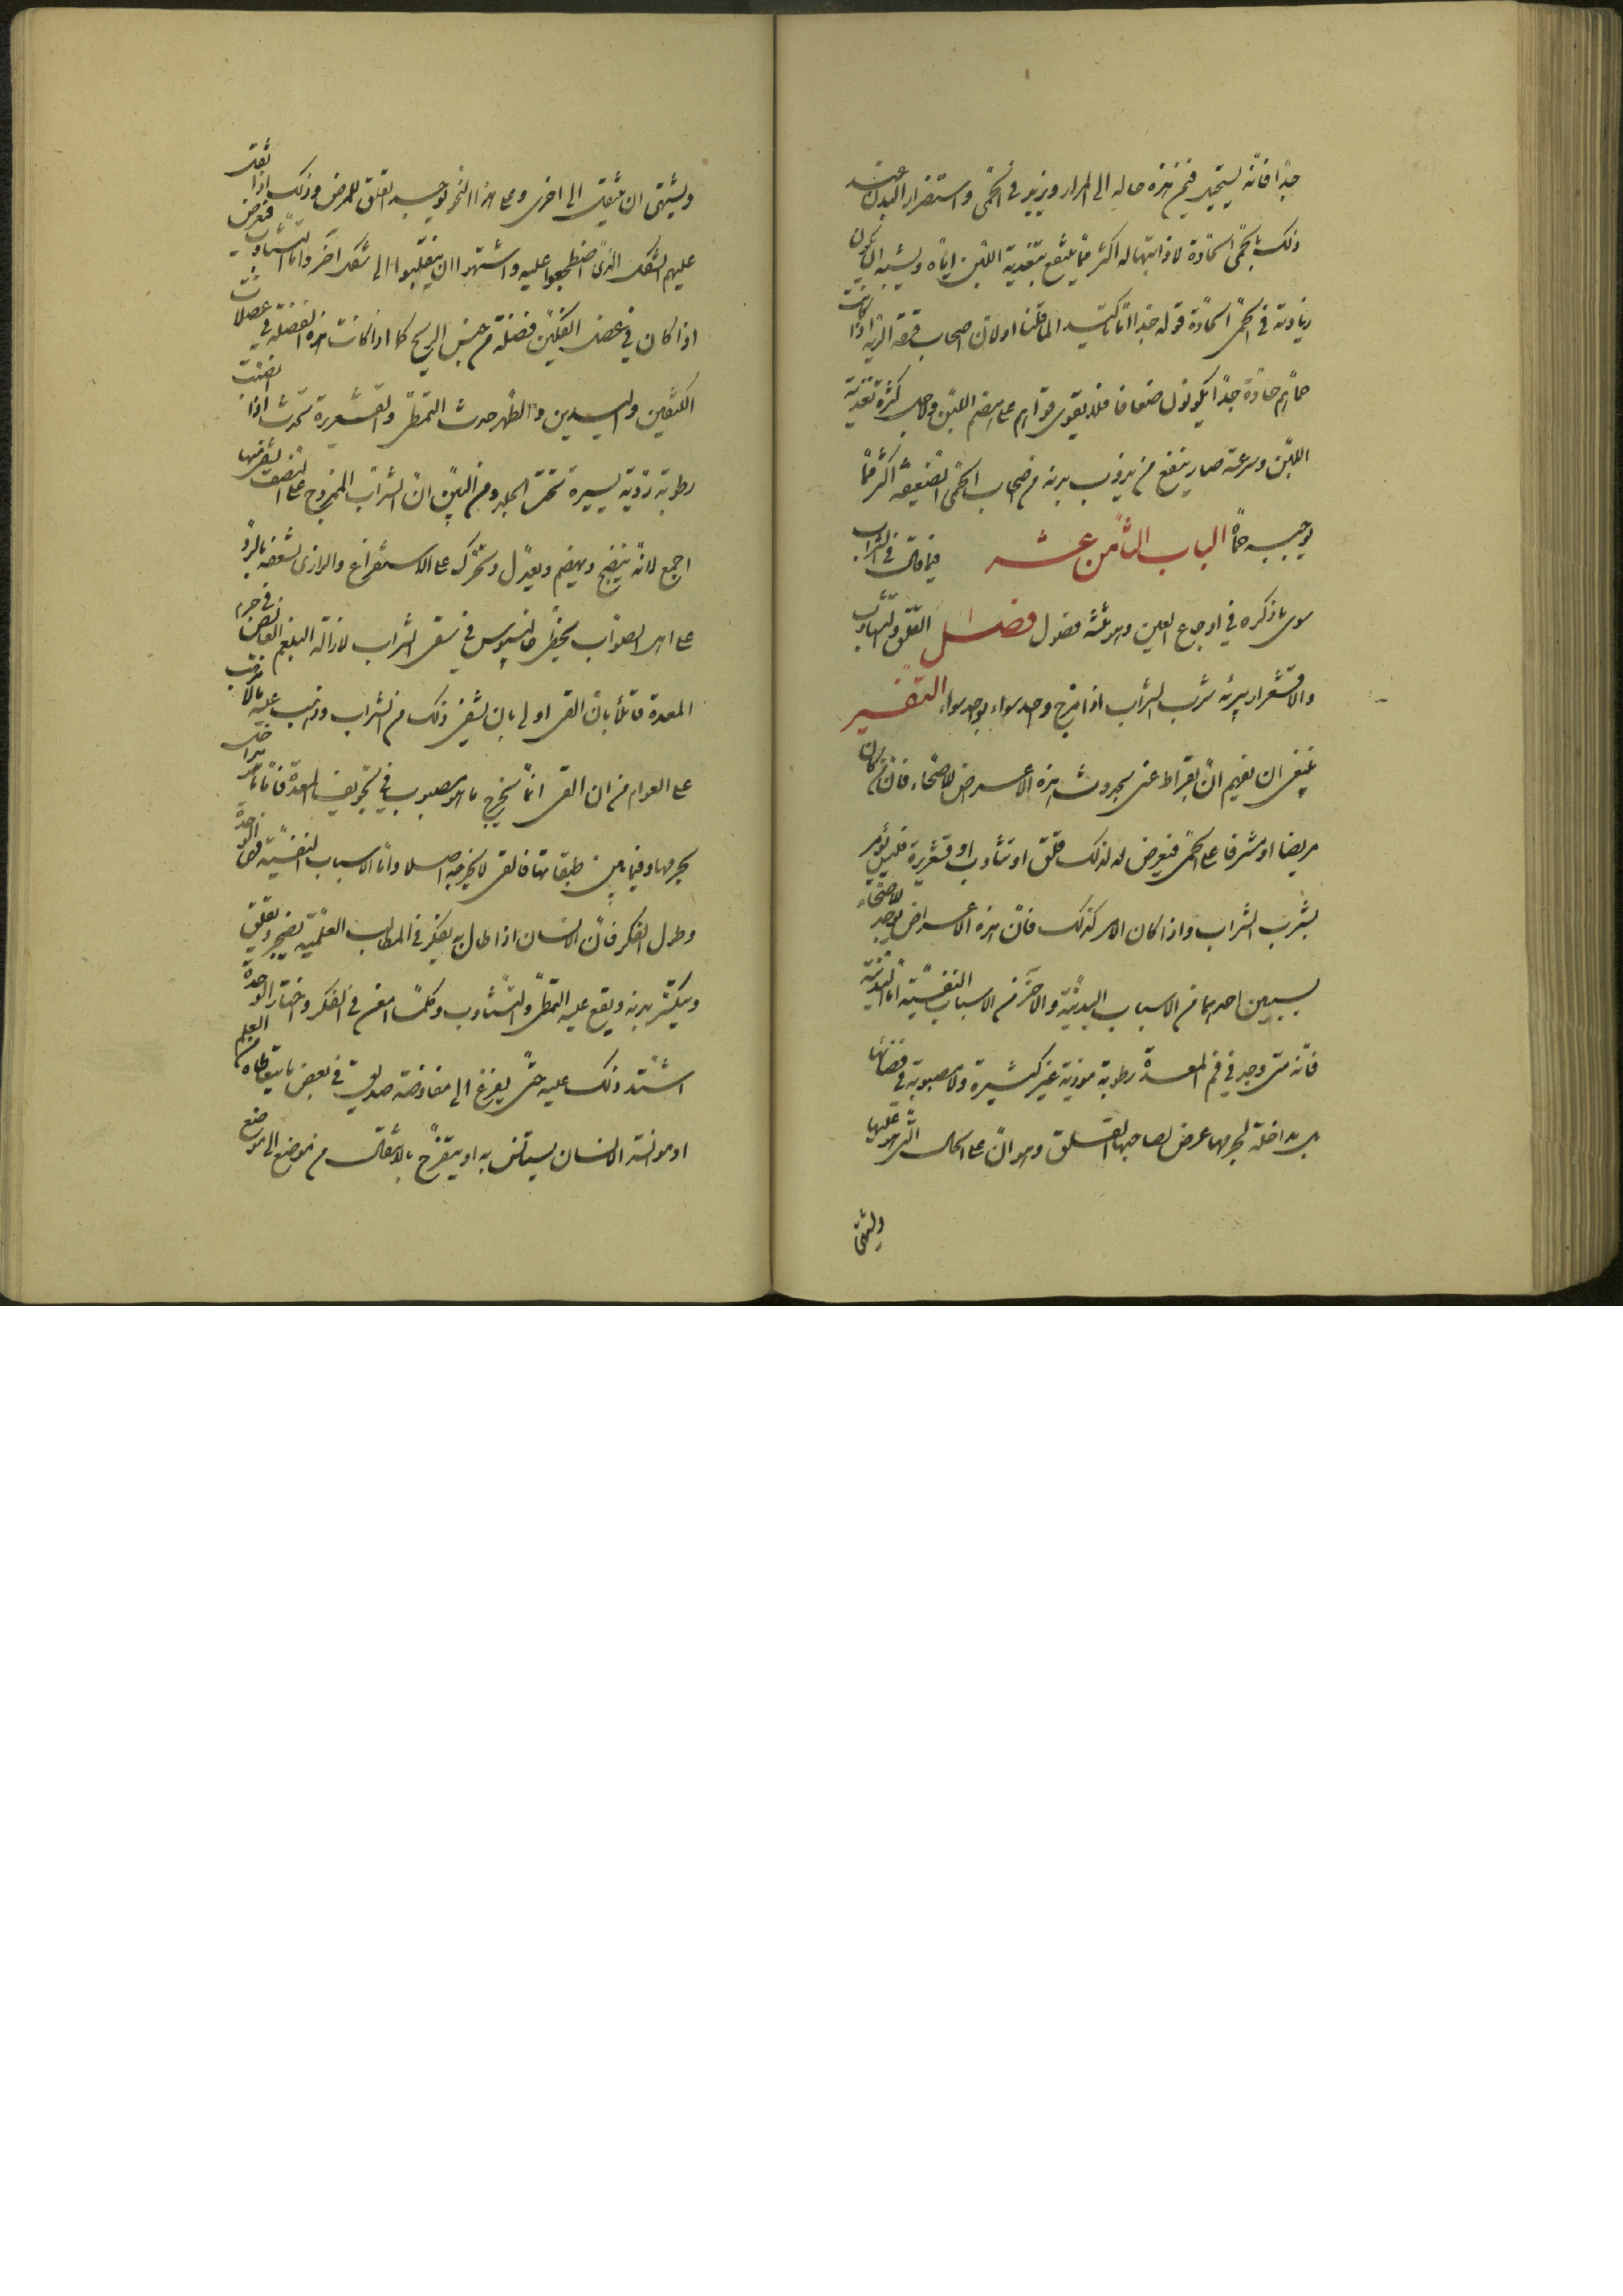 جدًا فانّه يستحيل فيمن هذه حاله الى المرار ويزيد فى الحمّى واستضرار البدن عند
ذلك بالحمّى الحادّة لاذابتها له اكثر ممّا ينتفع بتغذية اللبن ايّاه ويشبه ان يكون
زيادته فى الحمّى الحادّة قوله جدا امّا تاكيد لما قلنا او لانّ اصحاب قرحة الرية اذا كانت
حمّاهم حادّة جدًا يكونون ضعافا فلا يقوى قواهم على هضم اللبن ولاجل كثرة تغذية
اللبن وسرعته صار ينتفع من يذوب بدنه من اصحاب الحمّى الضعيفة اكثر ممّا
يوجبه حمّاه الباب الثامن عشر فيما قال فى الشراب
سوى ما ذكره فى اوجاع العين وهو ثلثة فصول فصل القلق والتثاؤب
والاقشعرار يبرئه شرب الشراب اذا مزج واحد سواء بواحد سواء التفسير
ينبغى ان نفهم انّ بقراط عنى بحدوث هذه الاعراض للاصحّاء فانّ من كان
مريضا او مشرفا على الحمّى فيعرض له لذلك قلق او تثاوب او قشعريرة فليس يؤمر
بشرب الشراب واذا كان الامر كذلك فانّ هذه الاعراض توجد للاصحّاء
بسببين احدهما من الاسباب البدنيّة والاخر من الاسباب النفسيّة امّا البدنيّة
فانّه متى وجد فى فم المعدة رطوبة موذية غير كثيرة ولا مصبوبة فى فضائها
بل مداخلة لجرمها عرض لصاحبها القلق وهو انّ على الحال التى هو عليها
ويشتهى
ويشتهى ان ينتقل الى اخرى وعلى هذا النحو يوجد القلق للمرضى وذلك اذا ثقل
عليهم الشكل الذى اضطجعوا عليه واشتهوا ان ينقلبوا الى شكل آخر وامّا التثاوب فيعرض
اذا كان فى عضل الفكّين فضلة من جنس الريح كما اذا كانت هذه الفضلة فى عضلات
الكتفين واليدين والظهر حدث التمطّى والقشعريرة تحدث اذا انصبّت
رطوبة رديّة يسيرة تحت الجلد ومن البيّن انّ الشراب الممزوج على النصف يشفى منها
اجمع لانّه ينضج ويهضم ويعدّل ويحرّك على الاستفراغ والرازى لشغفه بالردّ
على اهل الصواب يخطّى جالينوس فى سقى الشراب لازالة البلغم الغائص فى جرم
المعدة قائلًا بانّ القى اولى بان يشفى ذلك من الشراب وذهب عليه ما لا يذهب
على العوام من ان القى انّما يخرج ما هو مصبوب فى تجويف المعدة فامّا ما هو مداخل
لجرمها وفيما بين طبقاتها فالقى لا يخرجه اصلا وامّا الاسباب النفسيّة فهى الوحدة
وطول الفكر فانّ الانسان اذا طال به يفكر فى المطالب العلميّة يضجر ويقلق
ويتكسّر بدنه ويقع عليه التمطّى والتثاوب وكلّما امعن فى الفكر واختار الوحدة
اشتدّ ذلك عليه حتّى يفزع الى مفاوضة صديق فى بعض ما يتعاطاه من العلم
او موانسة الانسان يستأنس به او يتفرّج بالانتقال من موضع الى موضع